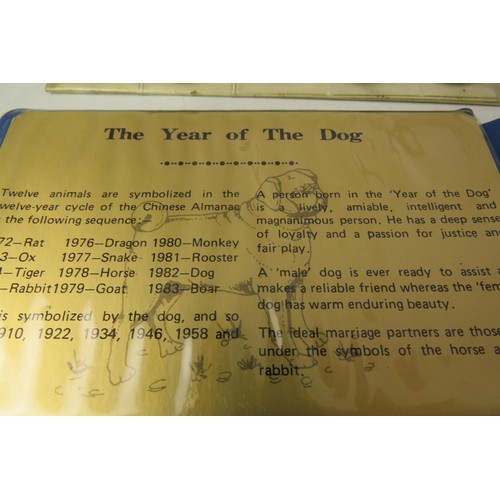 The Year of The Dog
Twelve animals are symbolized in the
twelve-year cycle of the Chinese Almanac
the following sequence:
72—Rat 1976—Dragon 1980—Monkey
3—Ox 1977—Snake 1981—Rooster
—Tiger 1978—Horse 1982—Dog
—Rabbit 1979—Goat 1983—Boar
is symbolized by the dog, and so
910, 1922, 1934, 1946, 1958 and
A person born in the 'Year of the Dog'
is a lively, amiable, intelligent and
magnanimous person. He has a deep sense
of loyalty and a passion for justice and
fair play.
A 'male' dog is ever ready to assist a
makes a reliable friend whereas the 'fem
dog has warm enduring beauty.
The ideal marriage partners are those
under the symbols of the horse a
rabbit.